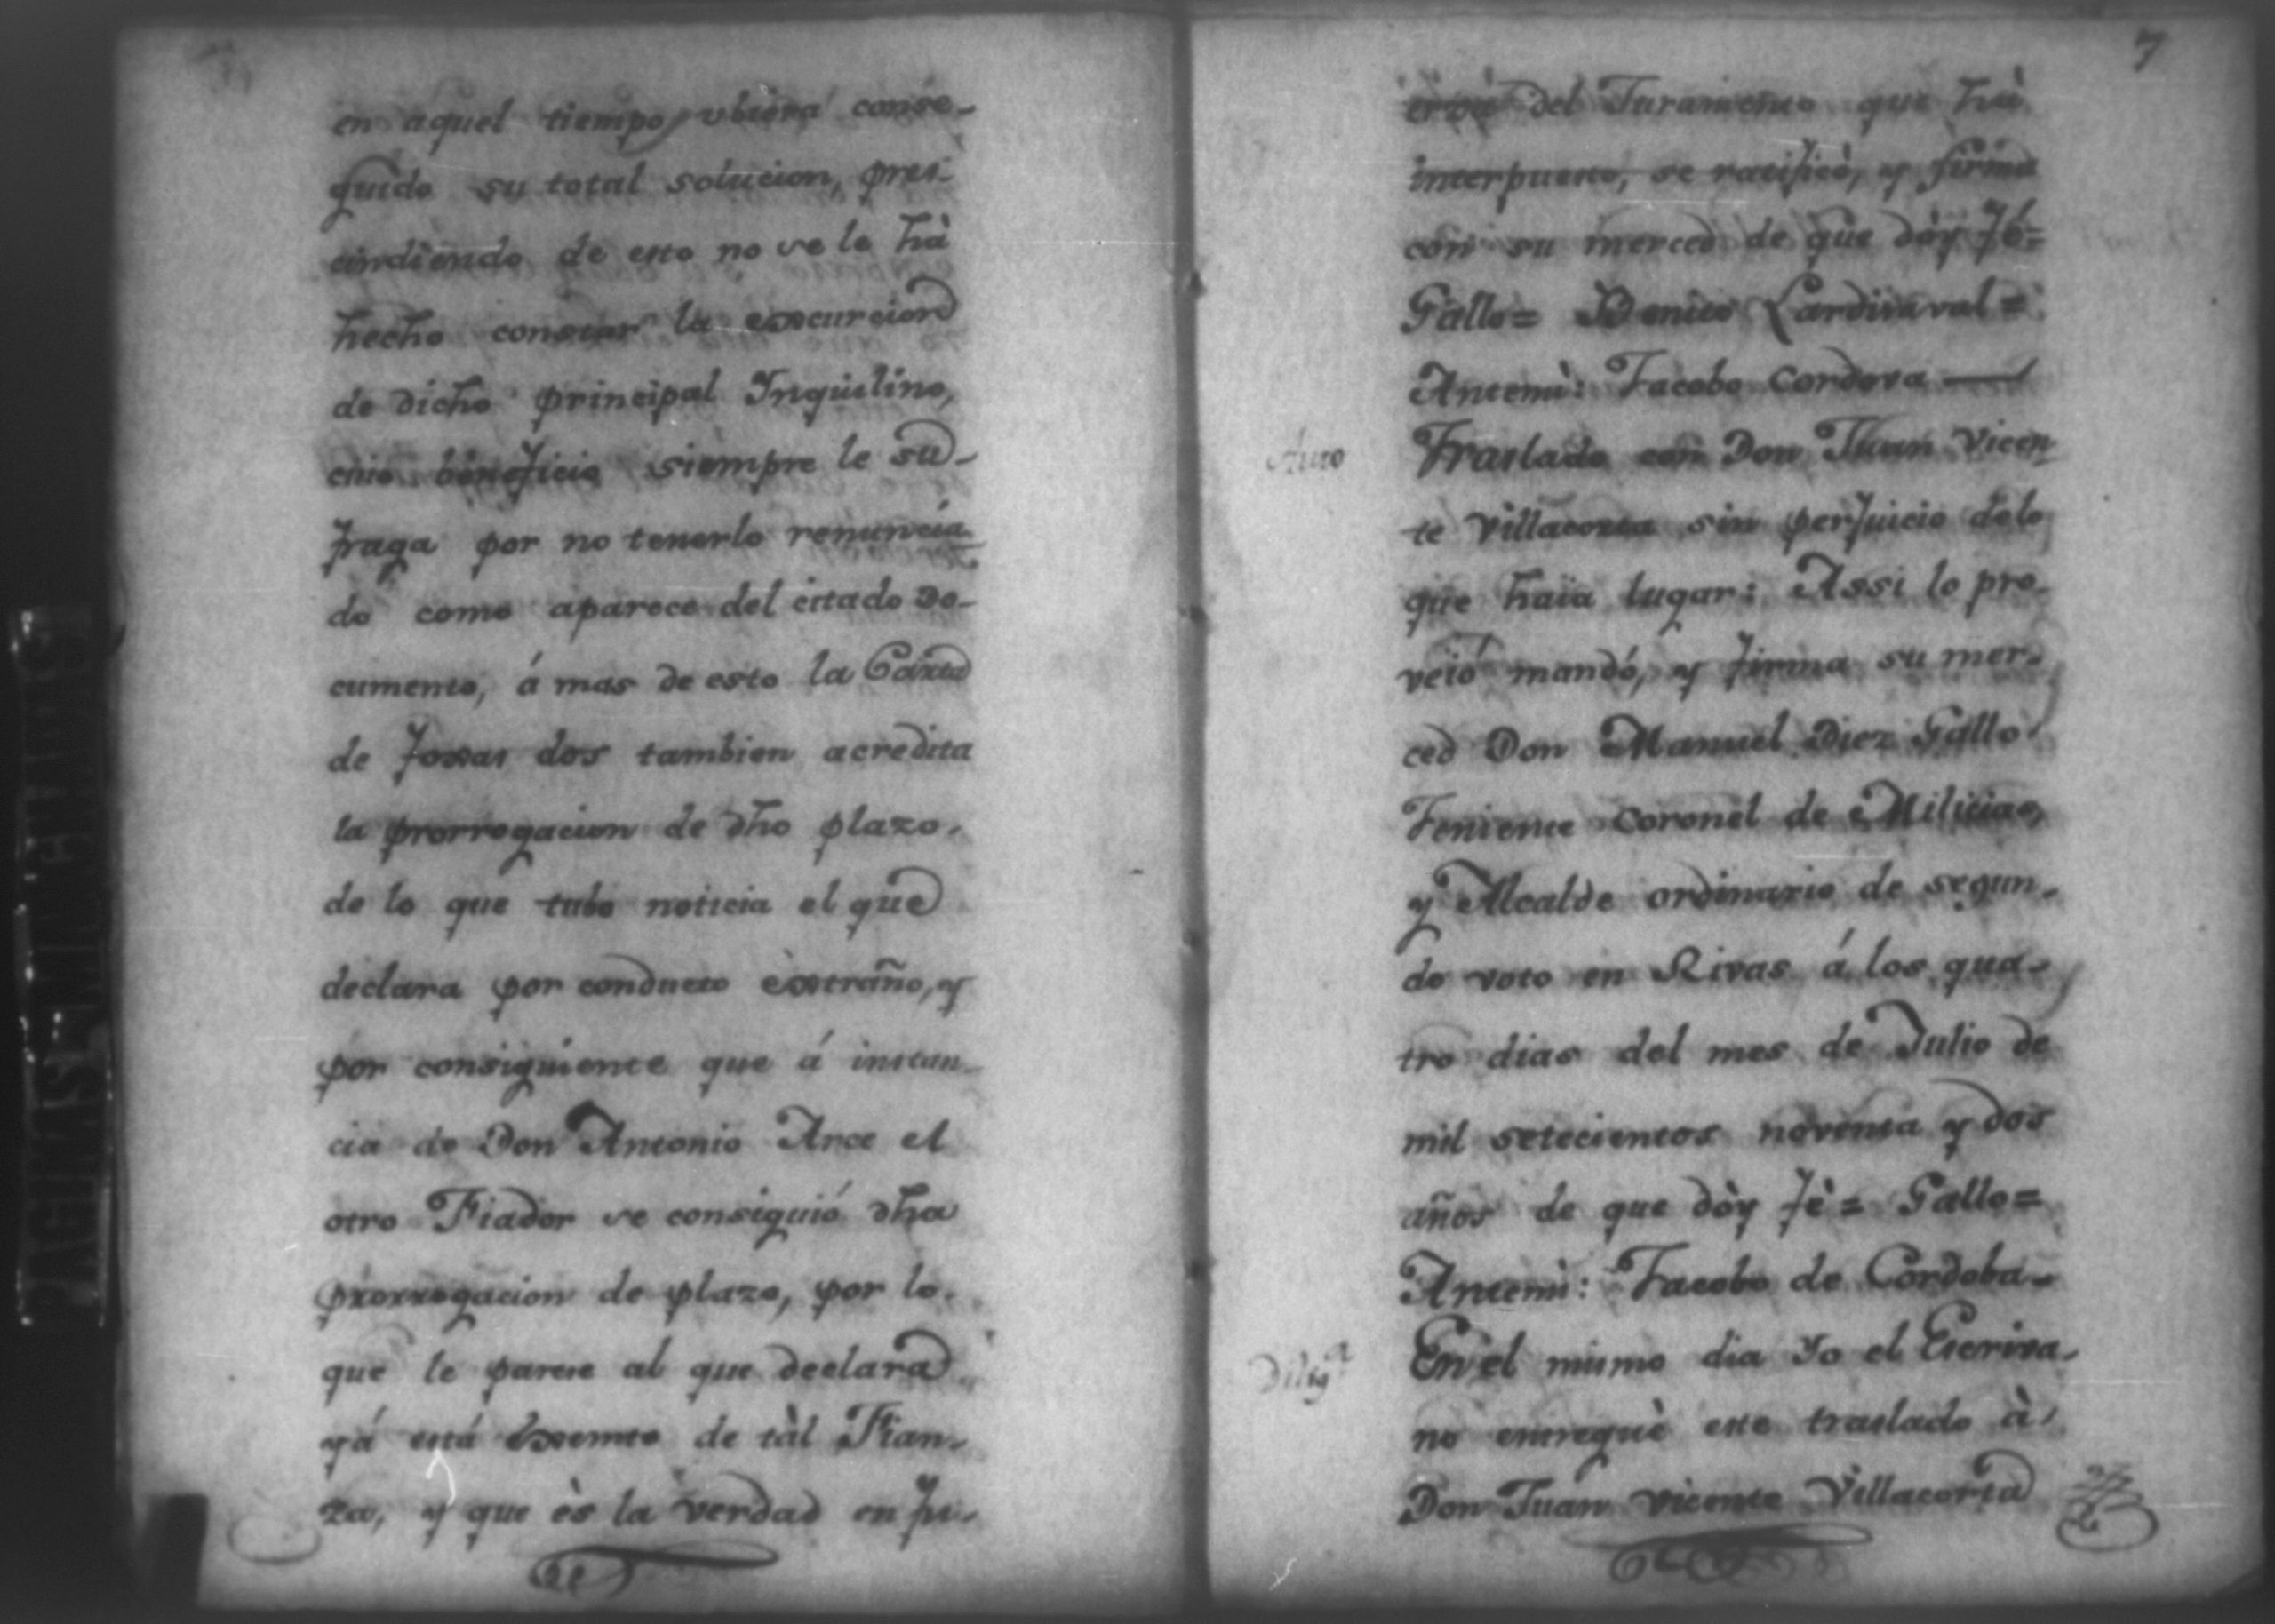 en aquel tiempo ubiera conse-
guido su total solucion, pres-
cindiendo de esto no se le hà
hecho constar la excurcion
de dicho principal Ynquilino,
cuio beneficio siempre le su-
fraga por no tenerlo renuncia-
do como aparece del citado Do-
cumento, á mas de esto la Carta
de foxas dos tambien acredita
la prorrogacion de dho plazo.
de lo que tubo noticia el que
declara por conducto extraño, y
por consiguiente que á instan-
cia de Don Antonio Arce el
otro Fiador se consiguió dha
prorrogacion de plazo, por lo
que le parece al que declara
yá está exsemto de tàl Fian-
za, y que ès la verdad en fu-
7
erza del Juramento que hà
interpuesto, se ratificò, y firma
con su merced de que dòy fè=
Gallo= Benito Lardizaval=
Antemì: Jacobo Cordova —
Auto
Traslado con Don Juan Vicen-
te Villacorta sin perjuicio de lo
que haia lugar: Assi lo pro-
veió mandó, y firma su mer-
ced Don Manuel Diez Gallo
Teniente Coronel de Milicias,
y Alcalde ordinario de segun-
do voto en Rivas á los qua-
tro dias del mes de Julio de
mil setecientos noventa y dos
años de que dòy fè= Gallo=
Antemì: Jacobo de Cordoba-
Diligª
En el mismo dia Yo el Escriva-
no entreguè este traslado à
Don Juan Vicente Villacorta